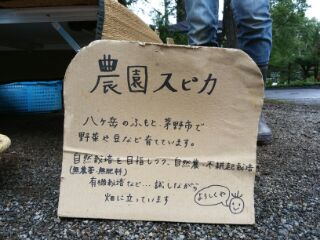 農園スピカ
八ヶ岳のふもと 茅野市で
野菜や豆など育てています。
自然栽培を目指しつつ、自然農・不耕起栽培
(無農薬・無肥料)
有機栽培など…試しながら
畑に立っています
よろしくね